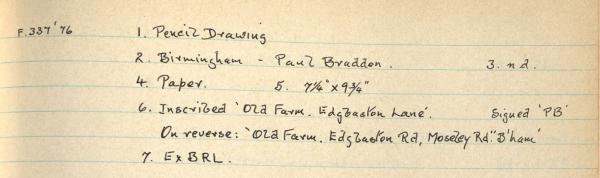 F.337'76 1. Pencil Drawing
2. Birmingham - Paul Braddon. 3. n.d.
4. Paper. 5. 7¼" x 9¾"
6. Inscribed 'Old Farm. Edgbaston Lane'. Signed 'PB'
On reverse: 'Old Farm. Edgbaston Rd, Moseley Rd." B'ham'
7. Ex BRL.